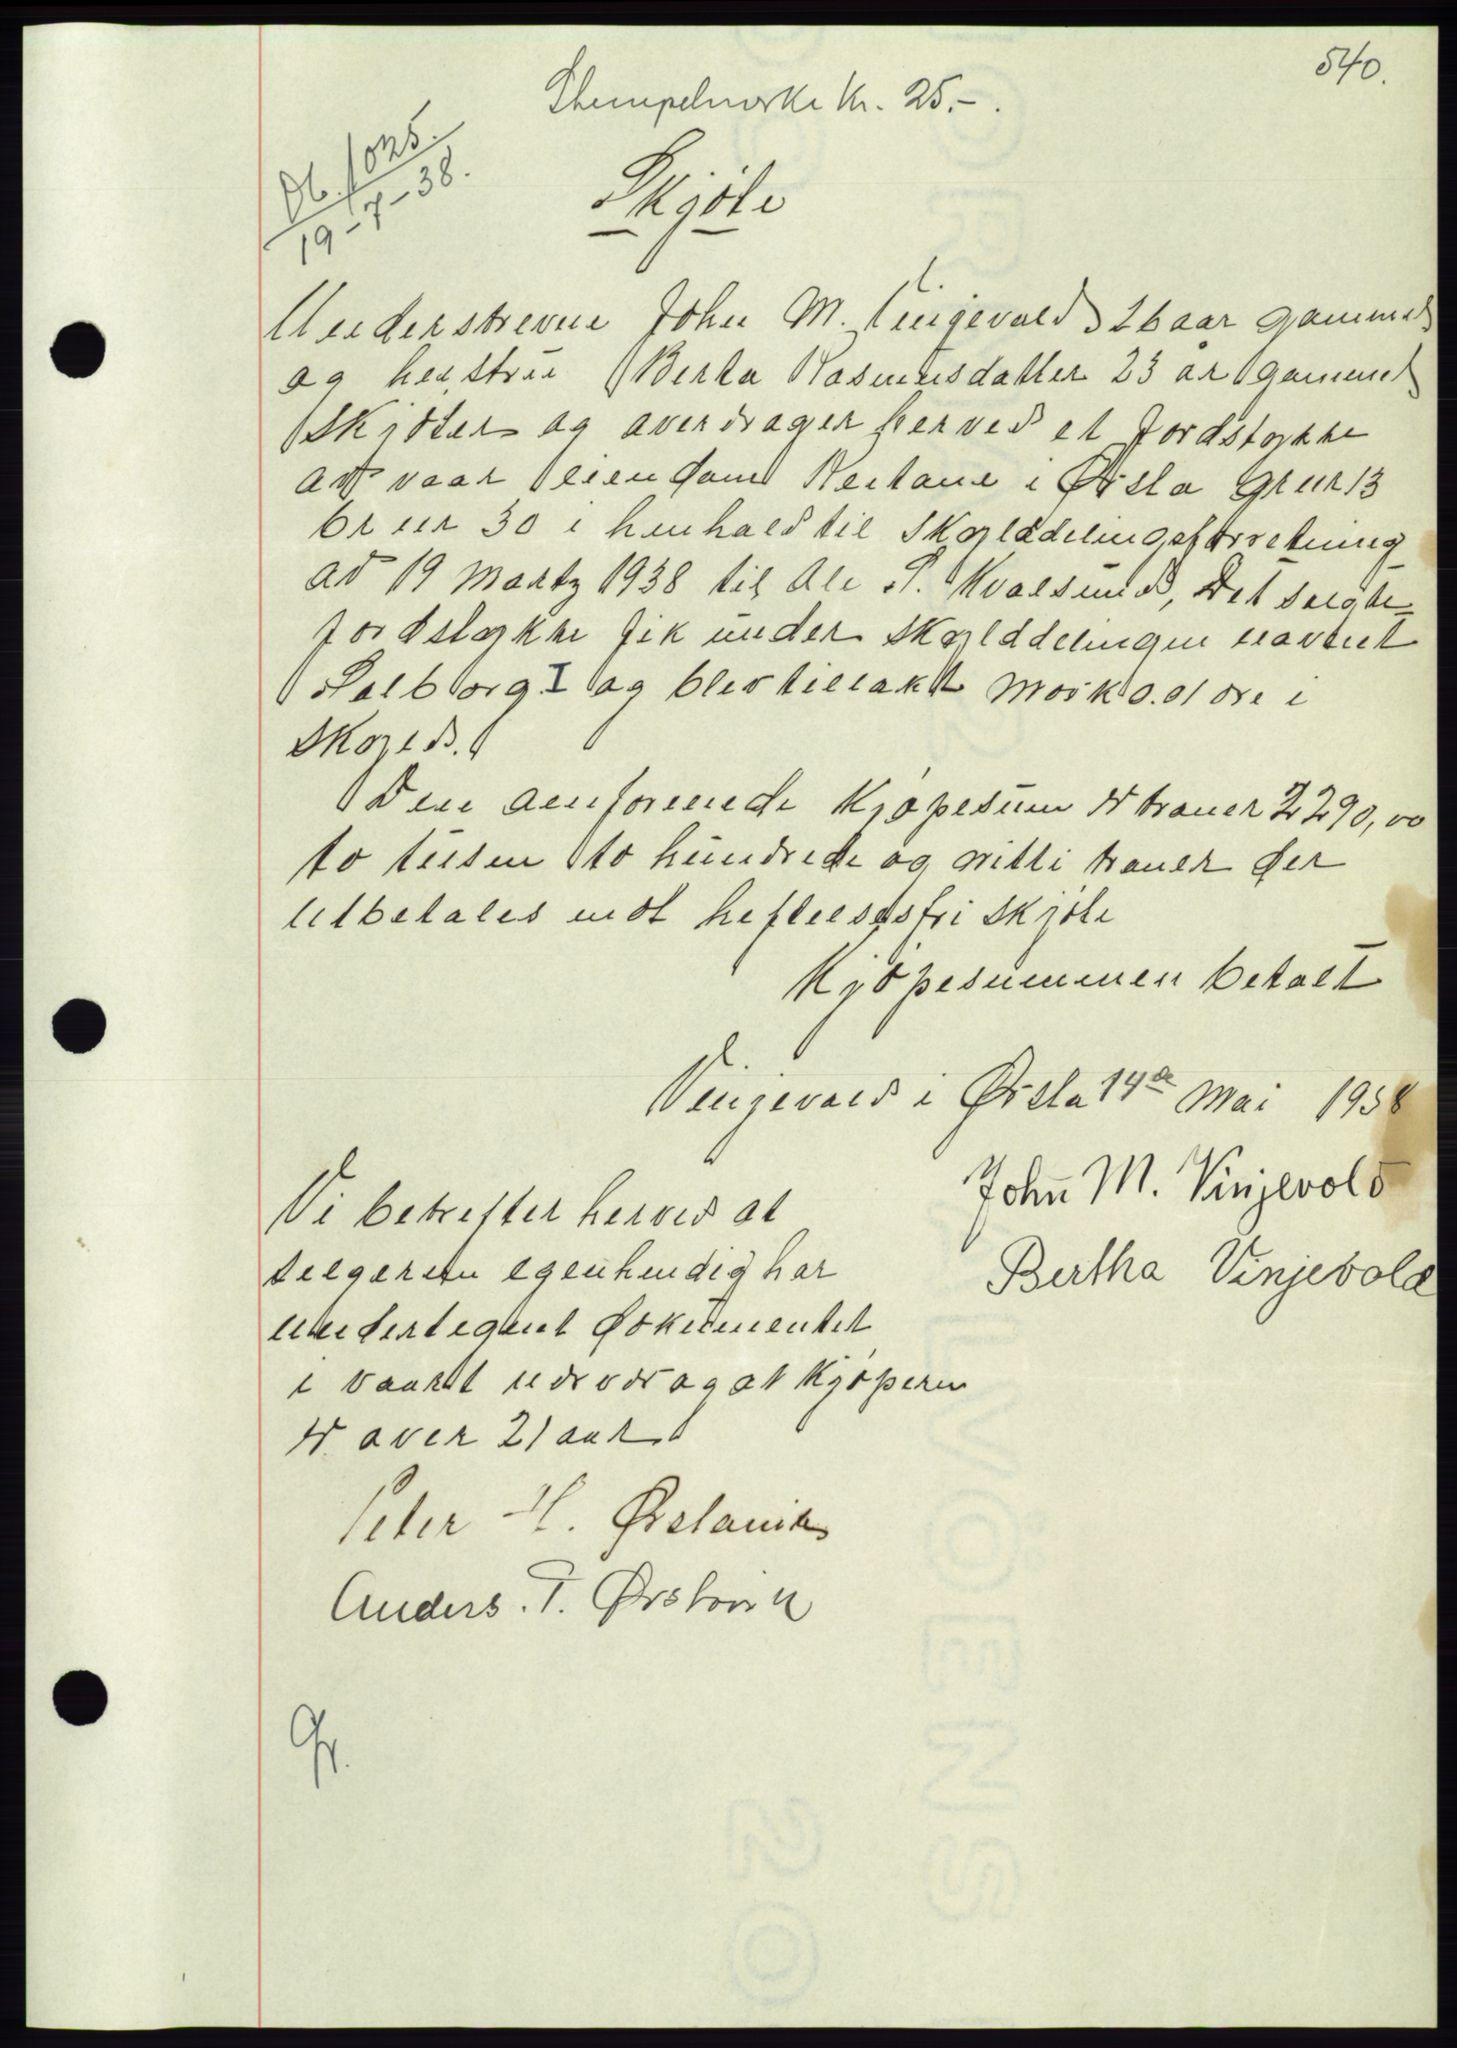 540.
Stempelmerke kr. 25.-.
Db. 1025.
19-7-38.
Skjøte
Underskrevne John M. Vinjevold 26 aar gammel
og hustrue Berta Rasmusdatter 23 år gammel
Skjøter og averdrager herved et Jordstykke
av vaar eiendom i Ørsta Grnr 13
brnr 30 i henhold til Skylddelingsforretning
av 19 Martz 1938 til Ole P. Kvalsund, Det solgte
Jordstykke fik under skylddelingen navnet
Solborg I og blev tillakt Mork 0.01 øre i
Skyld.
Den omforenede Kjøpesum er kroner 2290,00
to tusen to hundrede og nitti kroner der
utbetales mot heftelsesfri Skjøte
Kjøpesummen betalt
Vinjevold i Ørsta 14de Mai 1938
John M. Vinjevold
Bertha Vinjevold
Vi bekrefter herved at
selgeren egenhendig har
undertegnet dokumentet
i vaart nervær og at Kjøperen
er over 21 aar
Peter H. Ørstavik
Anders. T. Ørstavik
Gr.